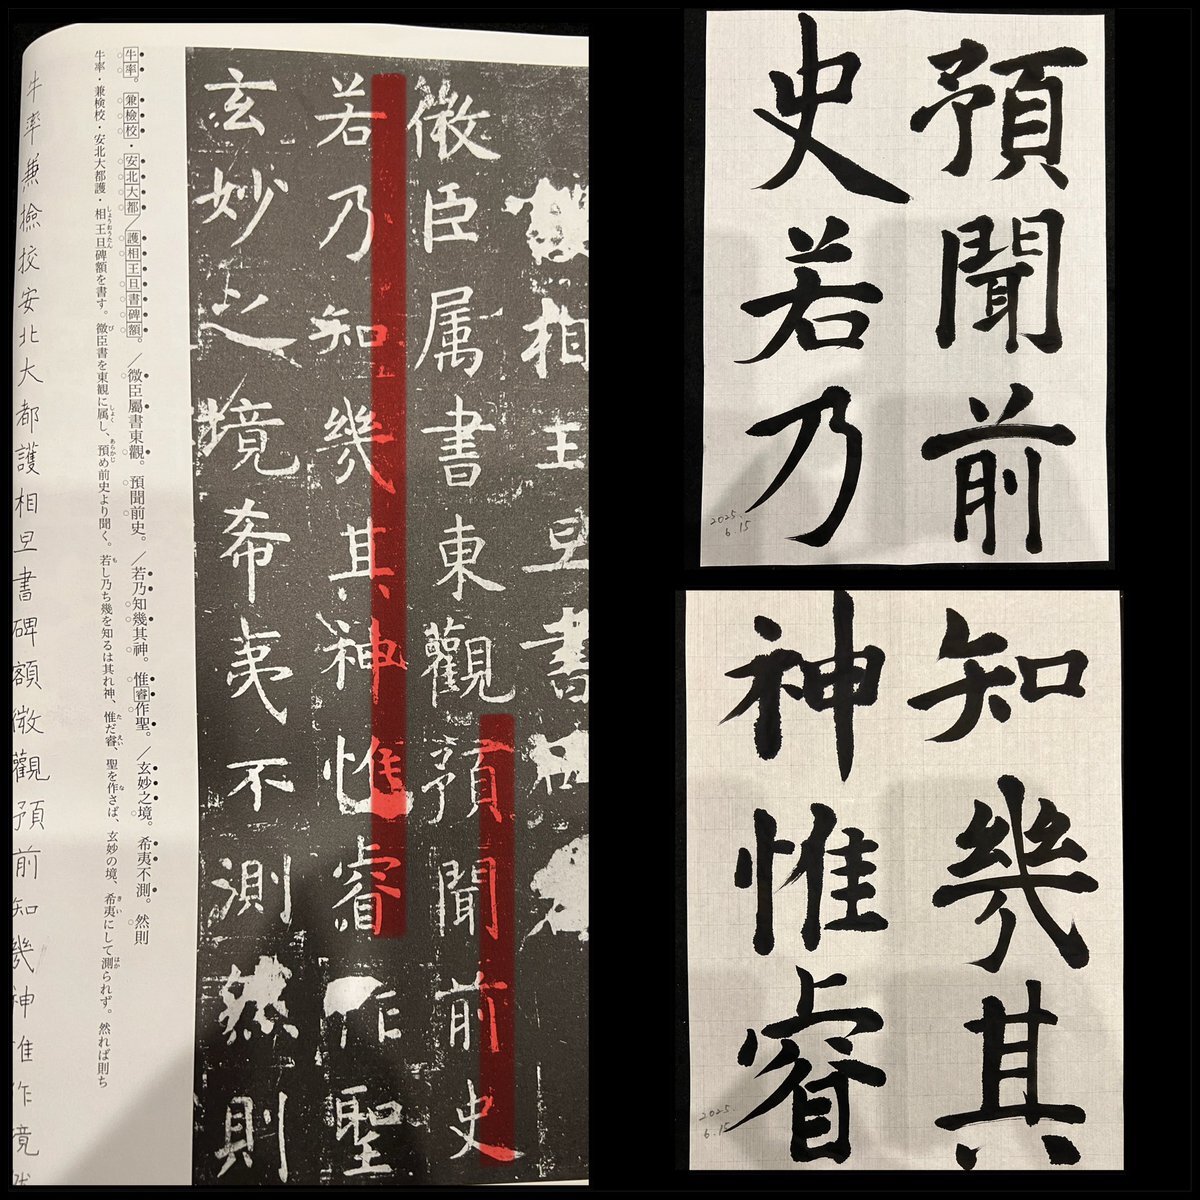 相王旦書
微臣属書東觀預聞前史
若乃知幾其神惟睿作聖
玄妙之境希夷不測然則
牛率。兼檢校・安北大都／護相王旦書碑額。／微臣屬書東觀。預聞前史。／若乃知幾其神。惟睿作聖。／玄妙之境。希夷不測。然則
牛率・兼検校・安北大都護・相王旦碑額を書す。微臣書を東観に属し、預め前史より聞く。若し乃ち幾を知るは其れ神、惟だ睿、聖を作さば、玄妙の境、希夷にして測られず。然れば則ち
牛率兼檢校安北大都護相旦書碑額微觀預前知幾神惟作境
預聞前
史若乃
2025.
6.15
知幾其
神惟睿
2025.
6.15